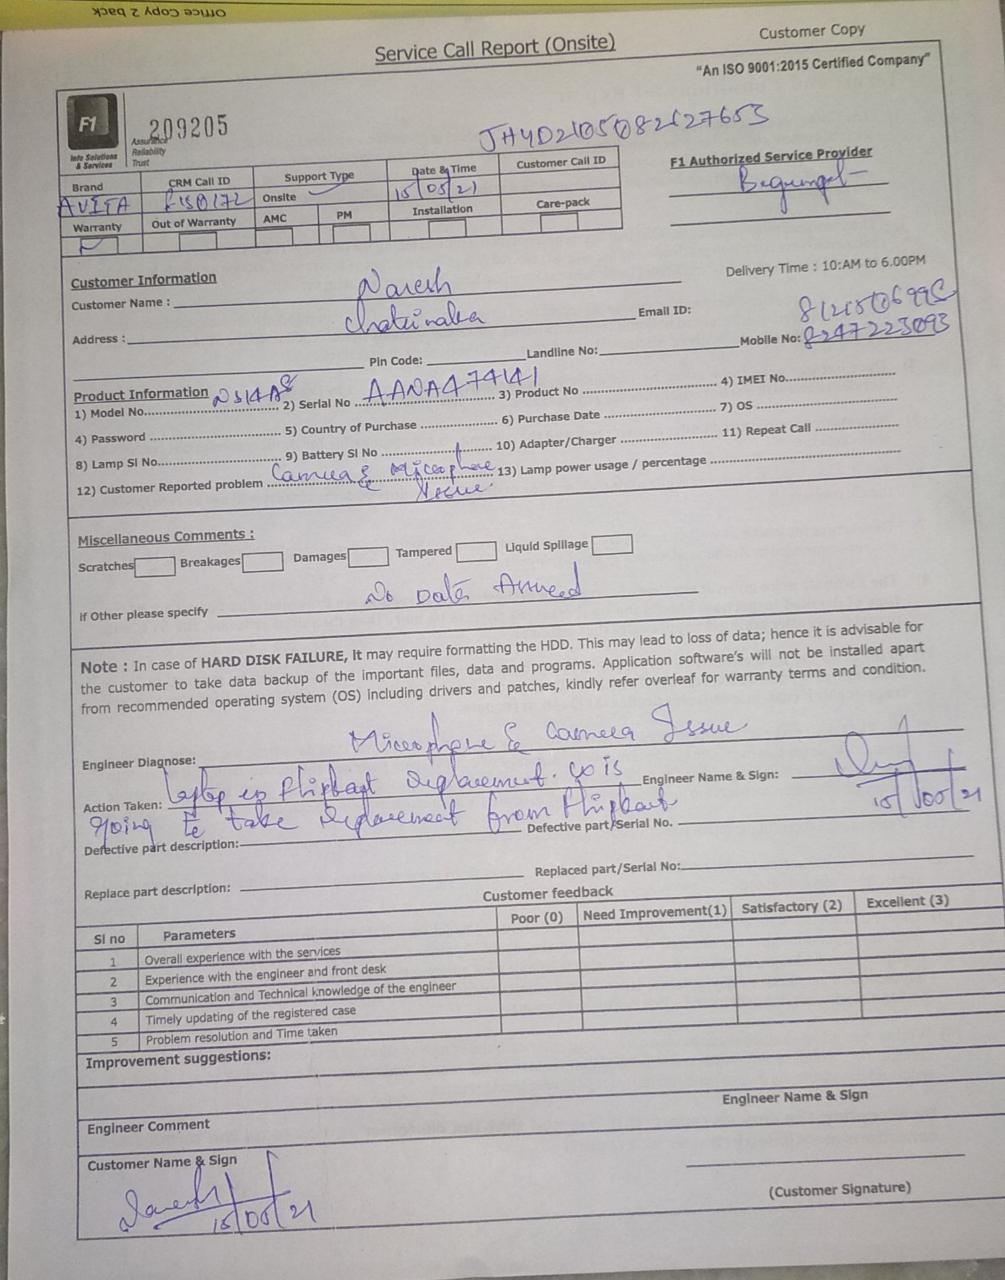 Office Copy 2 back
Customer Copy
Service Call Report (Onsite)
"An ISO 9001:2015 Certified Company"
F1
Info Solutions
& Services
Assurance
Reliability
Trust
209205
F1 Authorized Service Provider
Begumpet
Brand
CRM Call ID
Support Type
Date & Time
Customer Call ID
AVITA
Onsite
15/05/21
Warranty
Out of Warranty
AMC
PM
Installation
Care-pack
Customer Information
Delivery Time : 10:AM to 6.00PM
Customer Name : Naresh
Address :
Email ID:
Pin Code:
Landline No:
Mobile No: 8247223093
Product Information
1) Model No. NS14A8
2) Serial No AANA474141
3) Product No
4) IMEI No.
4) Password
5) Country of Purchase
6) Purchase Date
7) OS
8) Lamp SI No.
9) Battery SI No
10) Adapter/Charger
11) Repeat Call
12) Customer Reported problem Camera & Microphone
Issue
13) Lamp power usage / percentage
Miscellaneous Comments :
Scratches
Breakages
Damages
Tampered
Liquid Spillage
If Other please specify No Data
Note : In case of HARD DISK FAILURE, It may require formatting the HDD. This may lead to loss of data; hence it is advisable for
the customer to take data backup of the important files, data and programs. Application software's will not be installed apart
from recommended operating system (OS) including drivers and patches, kindly refer overleaf for warranty terms and condition.
Engineer Diagnose: Microphone & Camera Issue
Action Taken: Laptop is Flipkart replacement.
going to take replacement from Flipkart
Engineer Name & Sign:
15/05/21
Defective part description:
Defective part/Serial No.
Replace part description:
Replaced part/Serial No:
Customer feedback
Sl no
Parameters
Poor (0)
Need Improvement(1)
Satisfactory (2)
Excellent (3)
1 Overall experience with the services
2 Experience with the engineer and front desk
3 Communication and Technical knowledge of the engineer
4 Timely updating of the registered case
5 Problem resolution and Time taken
Improvement suggestions:
Engineer Name & Sign
Engineer Comment
Customer Name & Sign
Naresh
15/05/21
(Customer Signature)